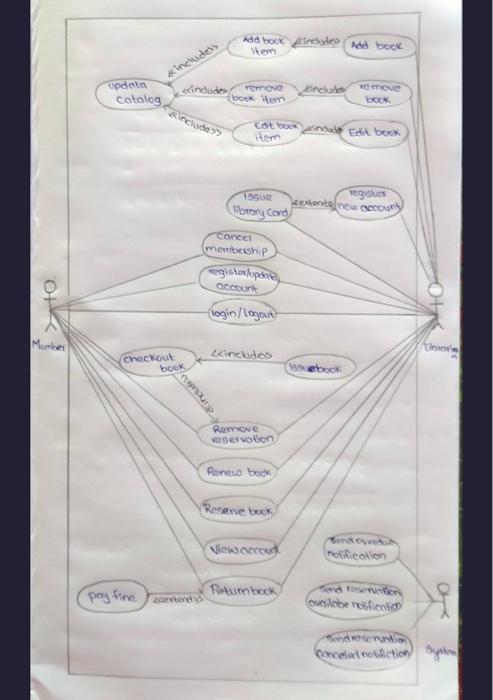 Add book
item
<<includes>>
Add book
<<includes>>
updata
catalog
<<includes>>
remove
book item
<<includes
remove
book
<<includes>>
Edit book
item
Edit book
Issue
library card
<<extends
register
new account
Cancel
membership
register/updata
account
login/logout
Member
Libraria
n
checkout
book
<<includes
Issuebook
Remove
reservation
Renew book
Reserve book
View account
Return book
pay fine
<<extend>>
Send overdue
notification
Send reservation
availabe notification
Send reservation
canceled notifiction
System